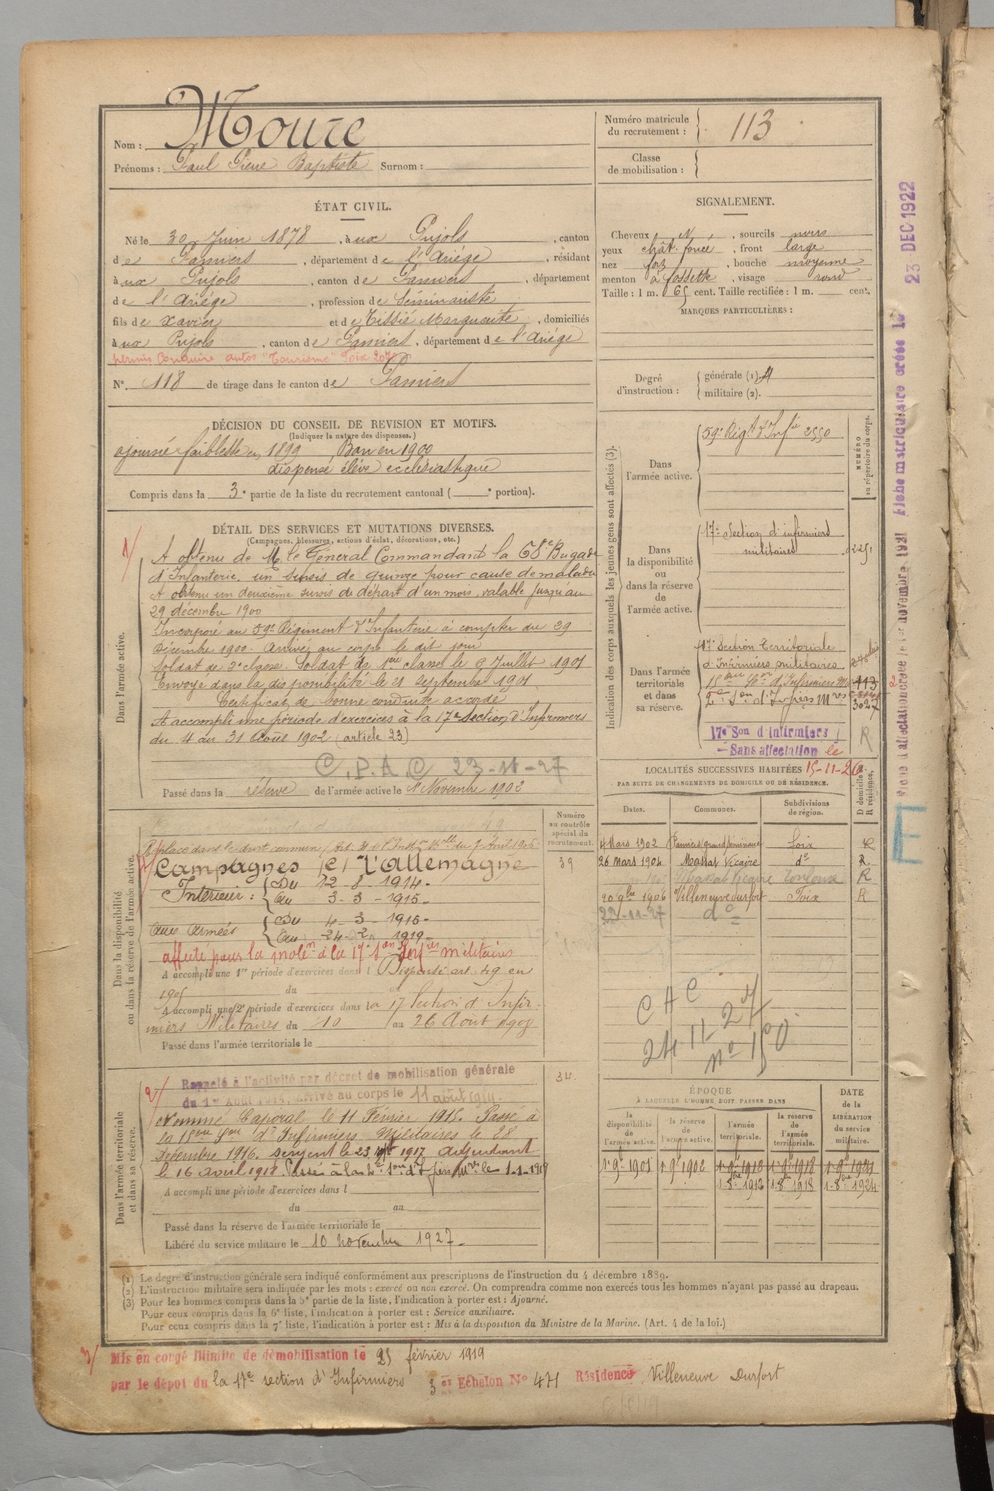 Nom : Moure
Prénoms : Paul Pierre Baptiste Surnom :
Numéro matricule du recrutement : 113
Classe de mobilisation :
ÉTAT CIVIL.
Né le 30 Juin 1878, à ux Pujols, canton
de Pamiers, département de l'Ariège, résidant
à ux Pujols, canton de Pamiers, département
de l'Ariège, profession de Séminariste
fils de Xavier et de Tissié Marguerite, domiciliés
à ux Pujols, canton de Pamiers, département de l'Ariège
permis conduire autos "Tourisme" Foix
N° 118 de tirage dans le canton de Pamiers
SIGNALEMENT.
Cheveux N, sourcils noirs
yeux chât. foncé, front large
nez fort, bouche moyenne
menton à fossette, visage rond
Taille : 1 m. 65 cent. Taille rectifiée : 1 m. cent.
MARQUES PARTICULIÈRES :
Degré d'instruction : générale (1). 4
militaire (2).
DÉCISION DU CONSEIL DE REVISION ET MOTIFS.
(Indiquer la nature des dispenses.)
ajourné faiblesse en 1899 Bon en 1900
dispensé élève ecclésiastique
Compris dans la 3e partie de la liste du recrutement cantonal ( e portion).
DÉTAIL DES SERVICES ET MUTATIONS DIVERSES.
(Campagnes, blessures, actions d'éclat, décorations, etc.)
Dans l'armée active.
1/
A obtenu de M. le Général Commandant la 68e Brigade
d'Infanterie, un sursis de quinze pour cause de maladie
A obtenu un deuxième sursis de départ d'un mois, valable jusqu'au
29 décembre 1900
Incorporé au 59e Régiment d'Infanterie à compter du 29
Décembre 1900. Arrivé au corps le dit jour
Soldat de 2e classe. Soldat de 1ère classe le 9 Juillet 1901
Envoyé dans la disponibilité le 21 Septembre 1901
Certificat de bonne conduite accordé
A accompli une période d'exercices à la 17e Section d'Infirmiers
du 4 au 31 Août 1902 (article 23)
C.P.A.C 23-11-27
Passé dans la réserve de l'armée active le 1er Novembre 1902
Indication des corps auxquels les jeunes gens sont affectés (3).
NUMÉRO au répertoire du corps.
Dans l'armée active.
59e Régt d'Infie 2550
Dans la disponibilité ou dans la réserve de l'armée active.
17e Section d'infirmiers
militaires
Dans l'armée territoriale et dans sa réserve.
17e Section Territoriale
d'Infirmiers militaires
113
3027
17e Son d'infirmiers
Sans affectation le
15-11-26
R
Fiche matriculaire créée le 23 DEC 1922
E
LOCALITÉS SUCCESSIVES HABITÉES
PAR SUITE DE CHANGEMENTS DE DOMICILE OU DE RÉSIDENCE.
D domicile. R résidence.
Dates. Communes. Subdivisions de région.
4 Mars 1902 Foix R
26 Mars 1904 Massat Vicaire do R.
Massat Vicaire Toulouse R
20 9bre 1906 Villeneuve durfort Foix R
22-11-27 do
C A C
24 11 27
No 150
Numéro au contrôle spécial du recrutement.
39
34
Dans la disponibilité ou dans la réserve de l'armée active.
Campagnes c/ l'allemagne
Intérieur : Du 12-8-1914-
Au 3-3-1915-
Aux Armées Du 4-3-1915-
Au 24-2-1919-
affecté pour la mobon à la 17e Son Infres militaires
A accompli une 1re période d'exercices dans l Dispensé art. 49 en
1905 du au
A accompli une 2e période d'exercices dans la 17 Section d'Infir-
miers Militaires du 10 au 26 Août 1908
Passé dans l'armée territoriale le
Dans l'armée territoriale et dans sa réserve.
2/
Rappelé à l'activité par décret de mobilisation générale
du 1er Août 1914, arrivé au corps le 11 août 1914
Nommé Caporal le 11 Février 1915. Passé à
la 15ème Son d'Infirmiers Militaires le 28
Décembre 1916. Sergent le 23 1917 Adjudant
le 16 avril 1918
A accompli une période d'exercices dans l
du au
Passé dans la réserve de l'armée territoriale le
Libéré du service militaire le 10 novembre 1927-
ÉPOQUE
À LAQUELLE L'HOMME DOIT PASSER DANS
la disponibilité de l'armée active.
la réserve de l'armée active.
l'armée territoriale.
la réserve de l'armée territoriale.
DATE de la LIBÉRATION du service militaire.
1er 9bre 1901 1er 9bre 1902 1er 9bre 1912 1er 9bre 1918 1er 9bre 1924
1-8bre 1912 1-8bre 1918 1-8bre 1924
(1) Le degré d'instruction générale sera indiqué conformément aux prescriptions de l'instruction du 4 décembre 1889.
(2) L'instruction militaire sera indiquée par les mots : exercé ou non exercé. On comprendra comme non exercés tous les hommes n'ayant pas passé au drapeau.
(3) Pour les hommes compris dans la 5e partie de la liste, l'indication à porter est : Ajourné.
Pour ceux compris dans la 6e liste, l'indication à porter est : Service auxiliaire.
Pour ceux compris dans la 7e liste, l'indication à porter est : Mis à la disposition du Ministre de la Marine. (Art. 4 de la loi.)
3/ Mis en congé illimité de démobilisation le 25 février 1919
par le dépôt du la 17e section d'Infirmiers 3e Echelon No 471 Résidence Villeneuve Durfort